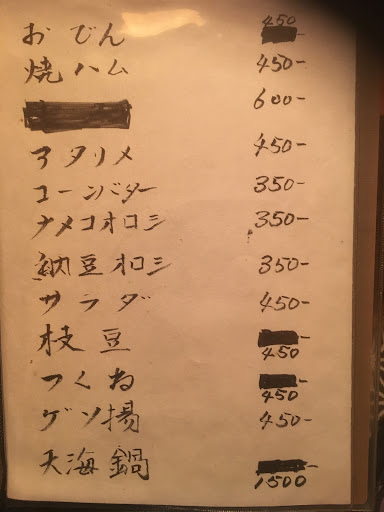 おでん 450
焼ハム 450-
600-
アタリメ 450-
コーンバター 350-
ナメコオロシ 350-
納豆オロシ 350-
サラダ 450-
枝豆 450
つくね 450
ゲソ揚 450-
天海鍋 1500